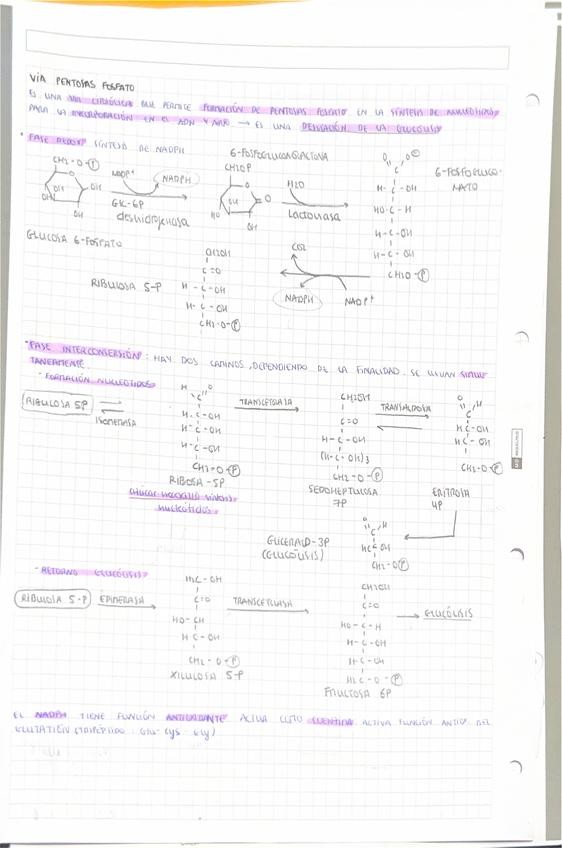 VÍA PENTOSAS FOSFATO
ES UNA VIA CATABÓLICA QUE PERMITE FORMACIÓN DE PENTOSAS FOSFATO EN LA SÍNTESIS DE NUCLEÓTIDOS
PARA LA INCORPORACIÓN EN EL ADN Y ARN → ES UNA DERIVACIÓN DE LA GLUCOLISIS
FASE REDOX: SÍNTESIS DE NADPH
CH2-O-P
NADP+
NADPH
GLC-6P
deshidrogenasa
GLUCOSA 6-FOSFATO
6-FOSFOGLUCONOLACTONA
CH2OP
H2O
Lactonasa
6-FOSFOGLUCO-
NATO
H-C-OH
HO-C-H
H-C-OH
H-C-OH
CH2O-P
CO2
NADPH
NADP+
RIBULOSA 5-P
CH2OH
C=O
H-C-OH
H-C-OH
CH2-O-P
FASE INTERCONVERSIÓN: HAY DOS CAMINOS, DEPENDIENDO DE LA FINALIDAD. SE USAN SIMUL
TANEAMENTE.
- FORMACIÓN NUCLEÓTIDOS
RIBULOSA 5P
ISOMERASA
H-C-OH
H-C-OH
H-C-OH
CH2-O-P
RIBOSA-5P
TRANSCETOLASA
CH2OH
C=O
H-C-OH
(H-C-OH)3
CH2-O-P
SEDOHEPTULOSA
7P
TRANSALDOLASA
HC-OH
HC-OH
CH2-O-P
ERITROSA
4P
GLICERALD-3P
(GLUCÓLISIS)
HC-OH
CH2-OP
- RETORNO GLUCÓLISIS
RIBULOSA 5-P
EPIMERASA
H2C-OH
C=O
HO-CH
HC-OH
CH2-O-P
XILULOSA 5-P
TRANSCETOLASA
CH2OH
C=O
HO-C-H
H-C-OH
H-C-OH
H2C-O-P
FRUCTOSA 6P
→ GLUCÓLISIS
EL NADPH TIENE FUNCIÓN ANTIOXIDANTE
ACTIVA FUNCIÓN ANTIOX DEL
GLUTATIÓN (TRIPÉPTIDO: Glu-Cys-Gly)